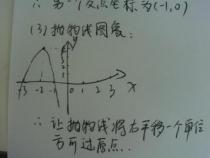 ∴ 另一个交点坐标为(-1,0)
(3)抛物线图象:
y
-3 -2 -1 0 1 2 3 x
∴ 让抛物线将右平移一个单位
方可过原点.